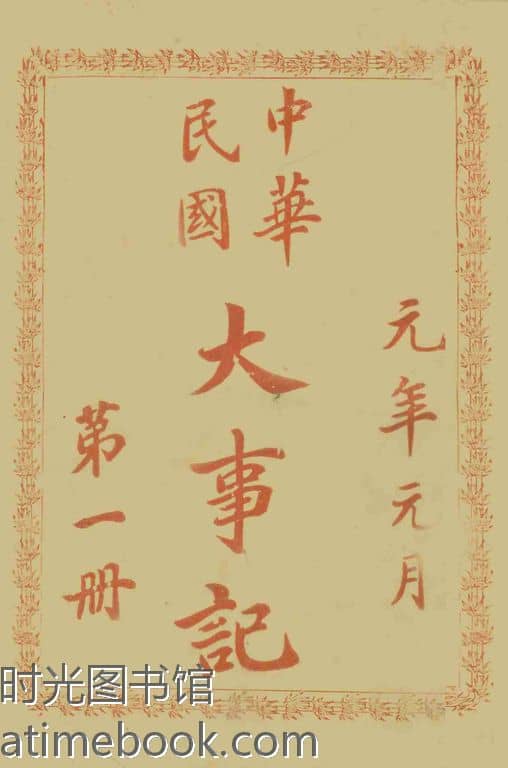 元年元月
中華
民國
大事記
第一册
时光图书馆
atimebook.com